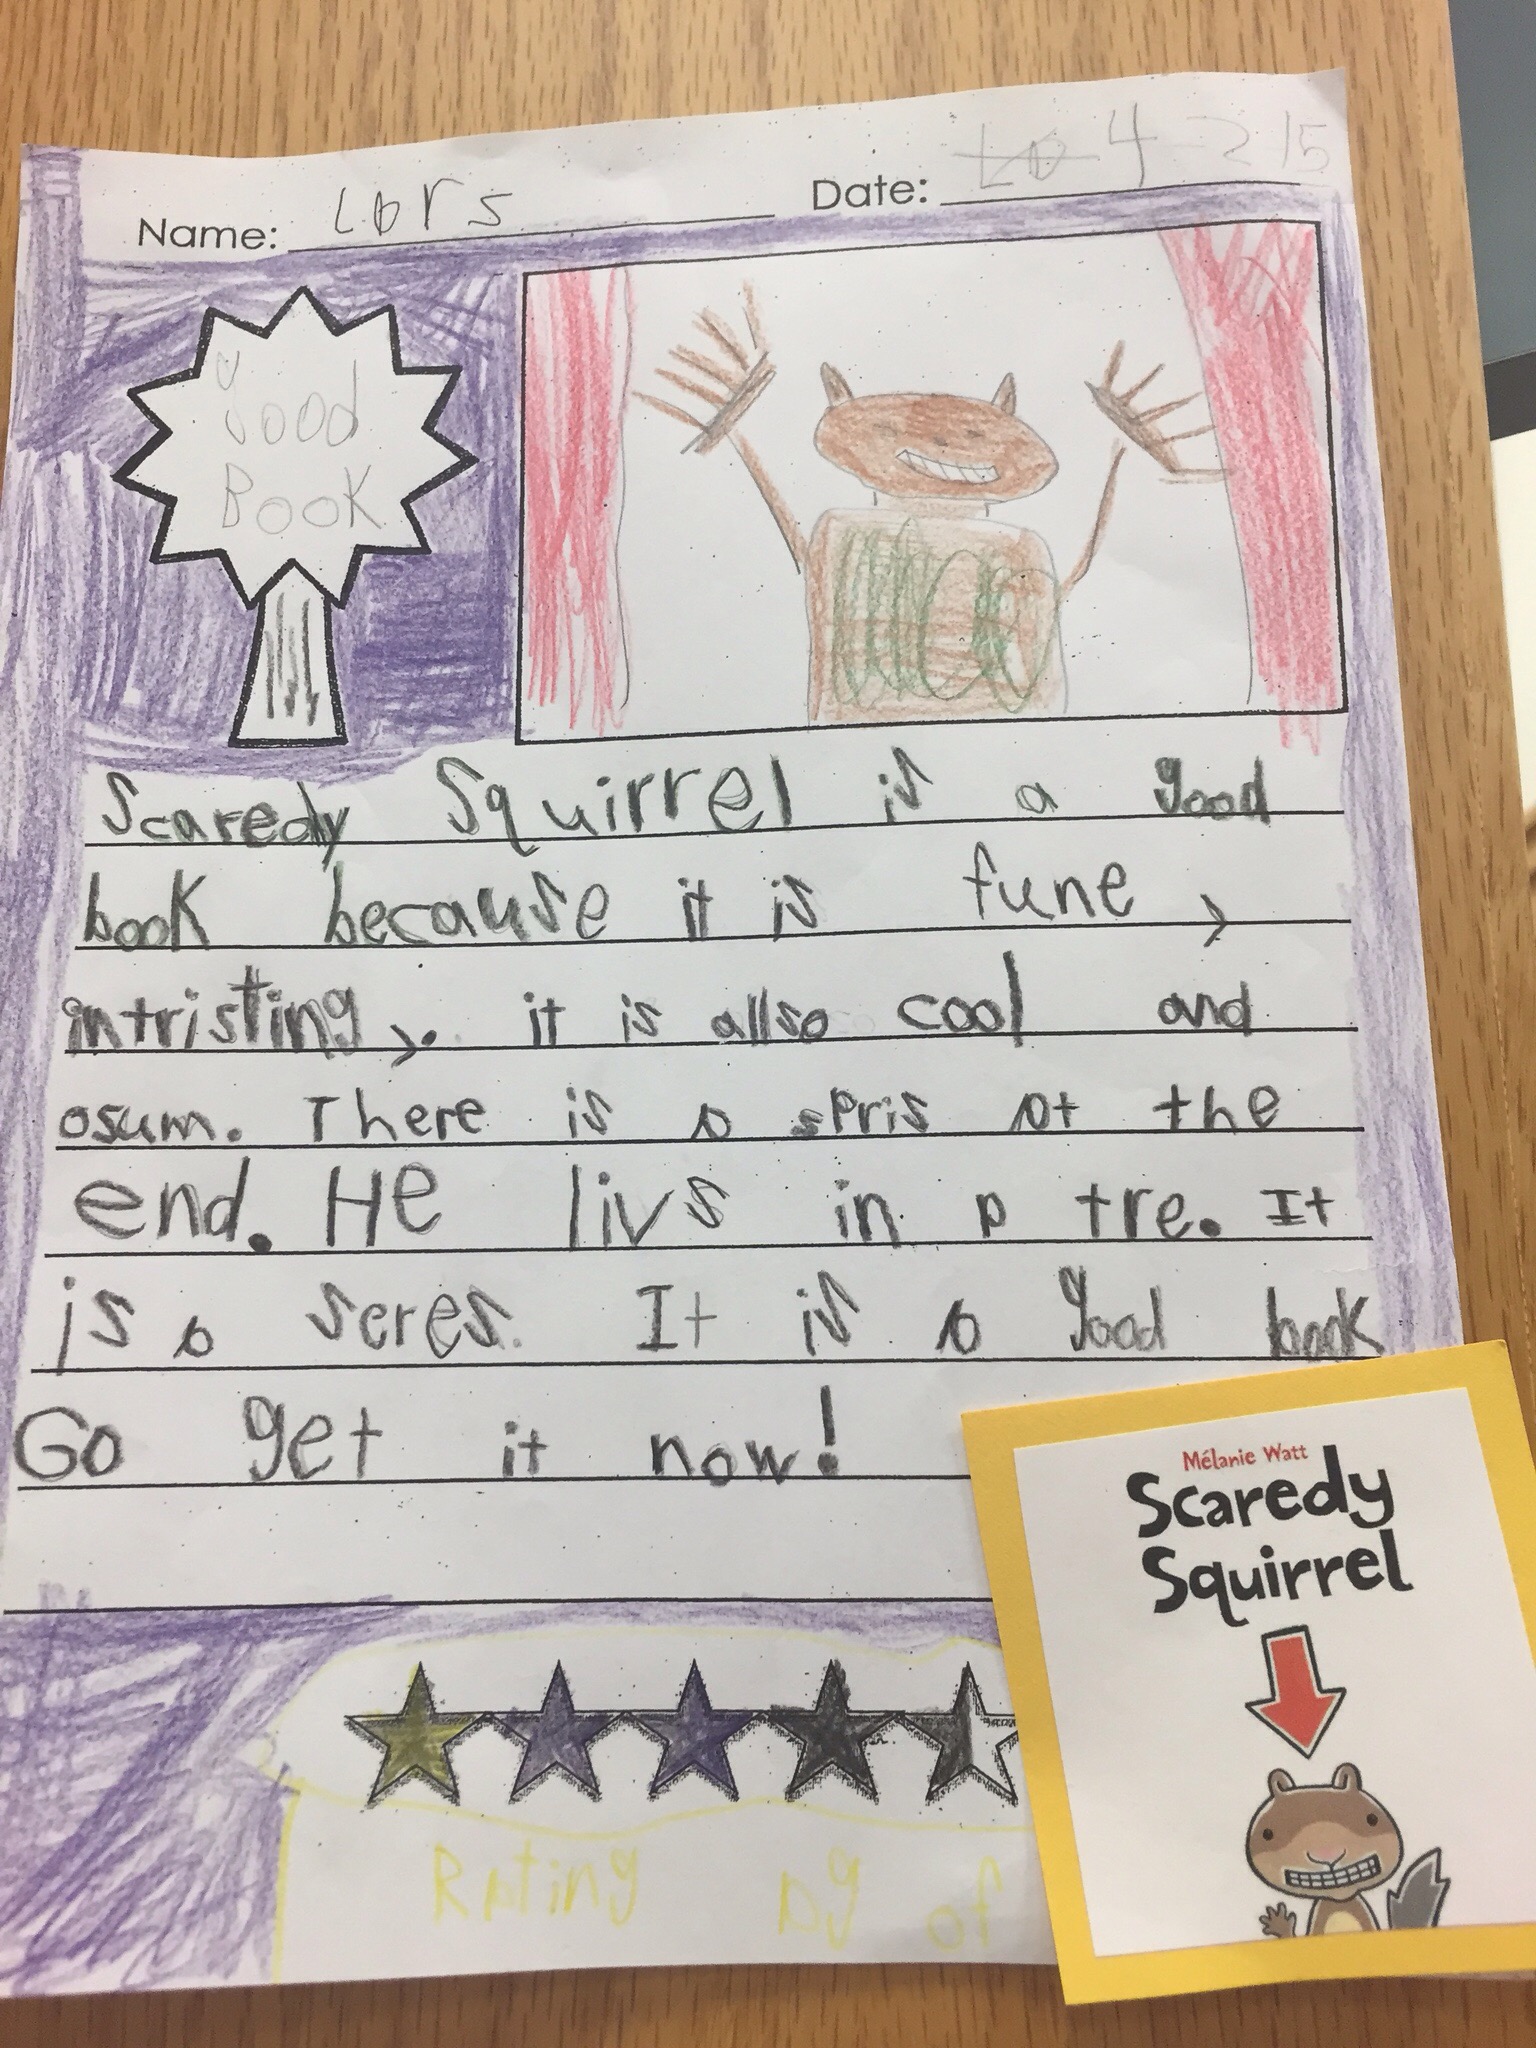 Name: Lars
Date: 4-2 15
good
Book
Scaredy Squirrel is a good
book because it is fune,
intristing,. it is allso cool and
osum. There is a spris at the
end. He livs in a tre. It
is a seres. It is a good book
Go get it now!
Rating ag of
Mélanie Watt
Scaredy
Squirrel